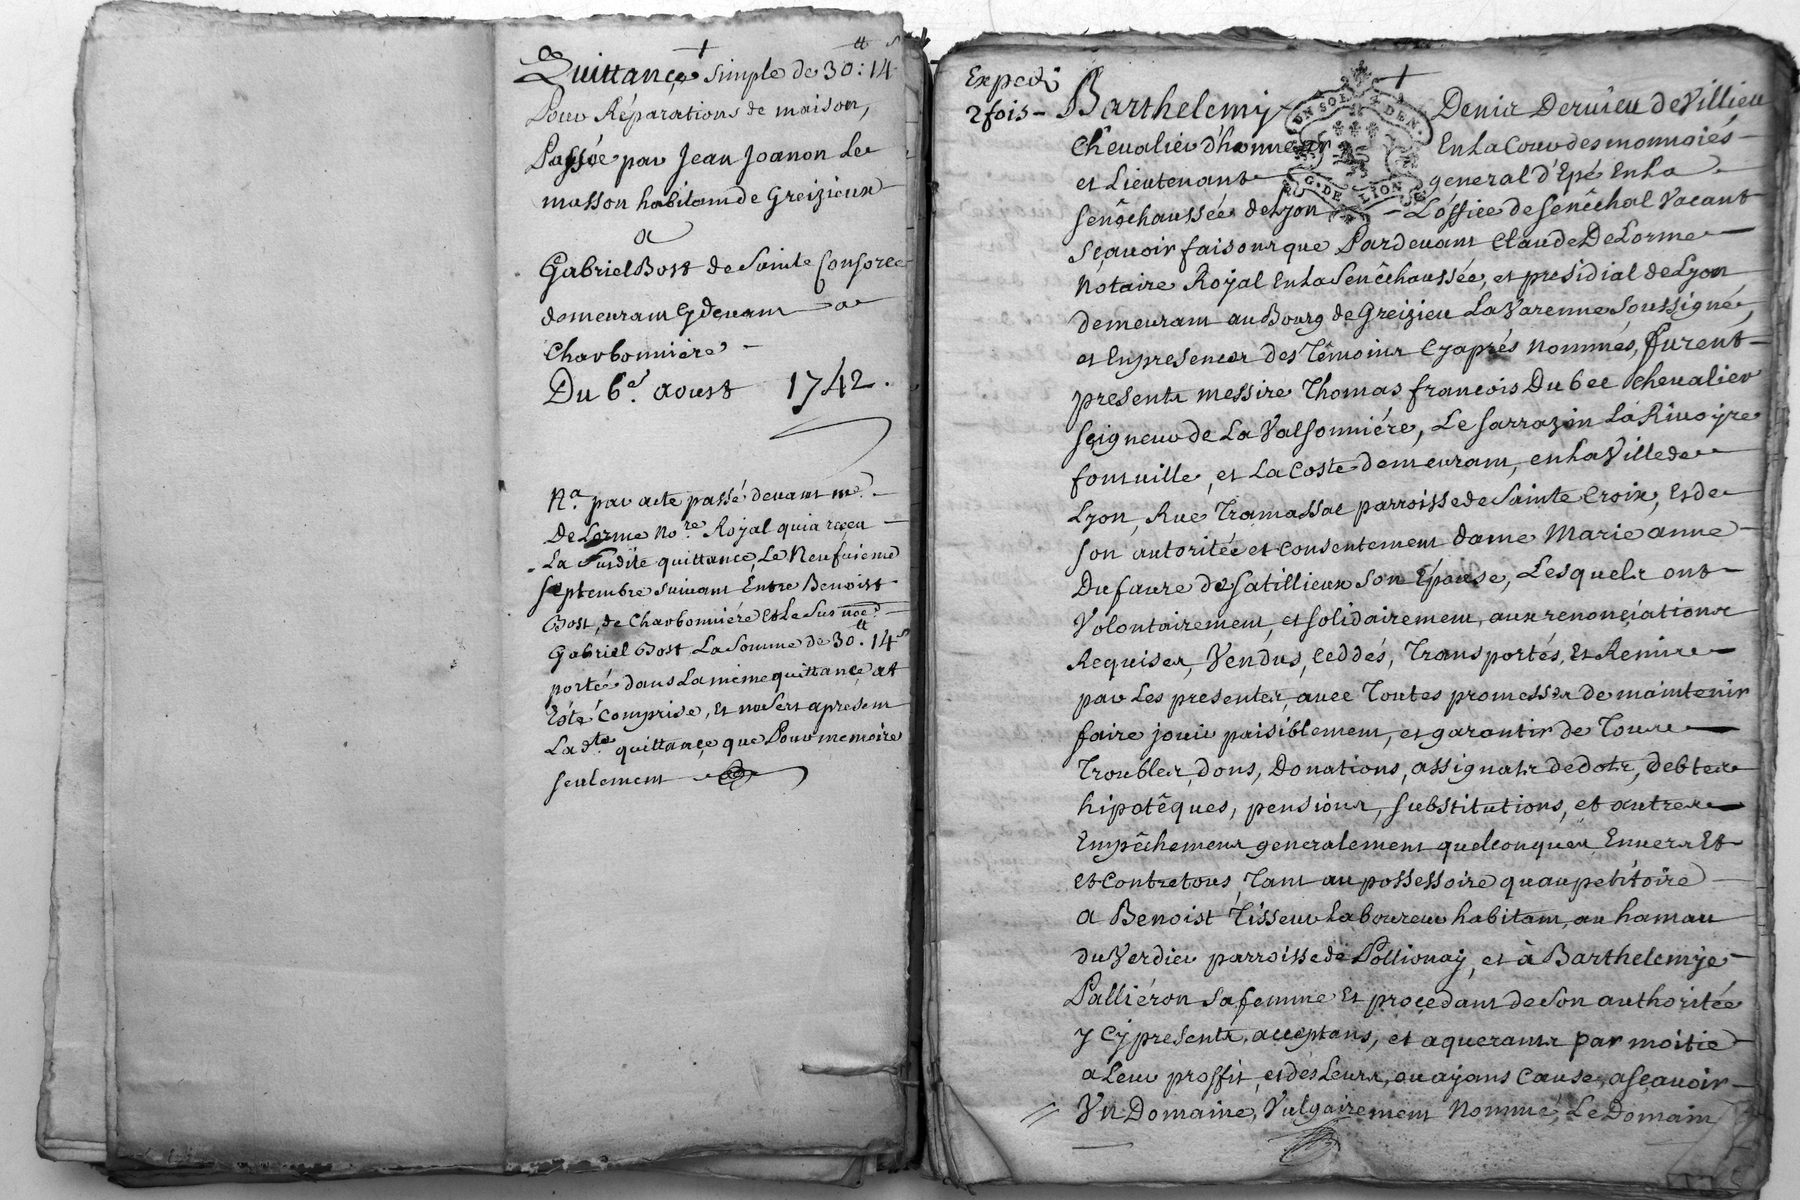 Quittance simple de 30: 14
Pour Réparations de maison,
Passée par Jean Joanon Le
masson habitant de Greizieux
a
Gabriel Bost de Sainte Consorce
demeurant cydevant a
Charbonnière -
Du 6e. aoust 1742.
Na. par acte passé devant me.
De Lorme Nore. Royal qui a receu
La susdite quittance, Le Neufvieme
septembre suivant Entre Benoist
Bost, de Charbonniére et Le Susnoé.
Gabriel Bost La Somme de 30tt. 14s
portée dans La même quittance, at
Esté Comprise, et ne sert apresent
La dte. quittance que Pour memoire
seulement
Expedi
2 fois -
Barthelemy Denis Dervieu de Villieu
Chevalier d'honneur En La Cour des monnoiés
et Lieutenant general d'Epé En La
senêchaussée de Lyon - L'office de senêchal Vacant
sçavoir faisons que Pardevant Claude De Lorme
Nôtaire Royal En La Senêchaussée, et presidial de Lyon
demeurant au Bourg de Greizieu La Varenne Soussigné,
et En presence des Têmoins Cyaprés Nommés, furent
presents messire Thomas francois Dubec chevalier
seigneur de La Valsonniére, Le sarrazin La Rivoyre
fontville, et La Coste demeurant, en La Ville de
Lyon, Rue Tramassac parroisse de Sainte Croix, Et de
son autoritée et consentement dame Marie anne
Dufaure de Satillieux Son Épouse, Lesquels ont
Vôlontairement, et solidairement, aux renonciations
Requises, Vendus, Ceddés, Transportés, Et Remis
par Les presentes, avec Toutes promesses de maintenir
faire jouir paisiblement, et garantir de Tous
Troubles, dons, Donations, assignats de dots, debtes
hipotêques, pensions, substitutions, et autres
Empêchemens generalement quelconques Envers Et
Et Contre tous Tant au possessoire quau petitoire
A Benoist Tisseur Laboureur habitant, au hamau
du Verdier parroisse de Pollionay, et à Barthelemye
Palliéron sa femme Et procedant de Son authoritée
y Cy presents, acceptans, et aquerants par moitie
a Leur proffit, et dés Leurs, ou ayans Cause, a sçavoir
Un Domaine, Vulgairement Nommé, Le Domain